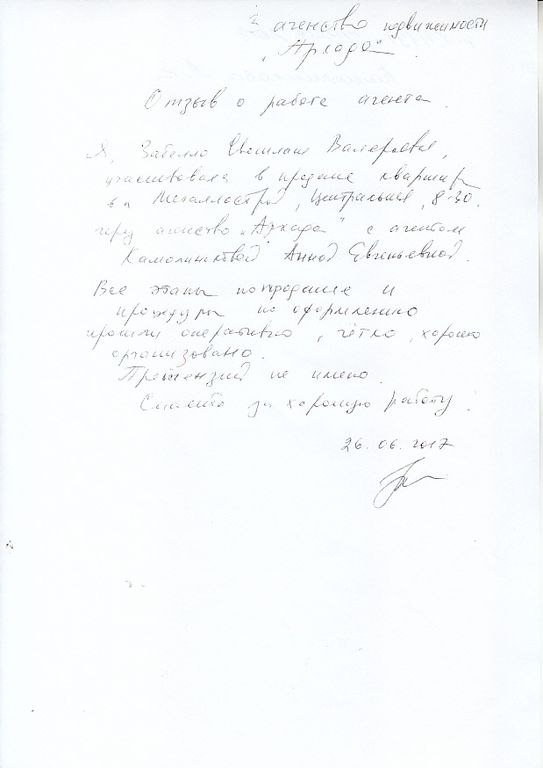 агенство недвижимости
"Аркада"
Отзыв о работе агента.
Я, Забелло Светлана Валерьевна,
участвовала в продаже квартиры
в п Металлострой, Центральная, 8-30.
через агнство "Аркада" с агентом
Анной Евгеньевной.
Все этапы по продаже и
процедуры по оформлению
прошли оперативно, чётко, хорошо
организовано.
Претензий не имею.
Спасибо за хорошую работу!
26.06.2017